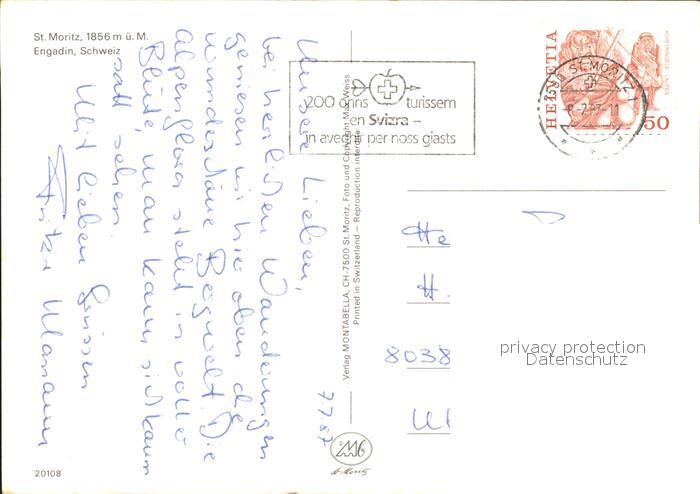 St. Moritz, 1856 m ü. M.
Engadin, Schweiz
7.7.87
Unsere Lieben,
bei herrlichen Wanderungen
geniesen wir hier oben die
wunderschöne Bergwelt. Die
Alpenflora steht in voller
Blüte, man kann sich kaum
satt sehen.
Mit lieben Grüssen
Verlag MONTABELLA, CH-7500 St. Moritz, Foto und Copyright Max Weiss
Printed in Switzerland – Reproduction interdite
200 onns turissem
en Svizra –
in avegnir per noss giasts
HELVETIA
50
ST. MORITZ 1
He
H.
8038
privacy protection
Datenschutz
St. Moritz
20108